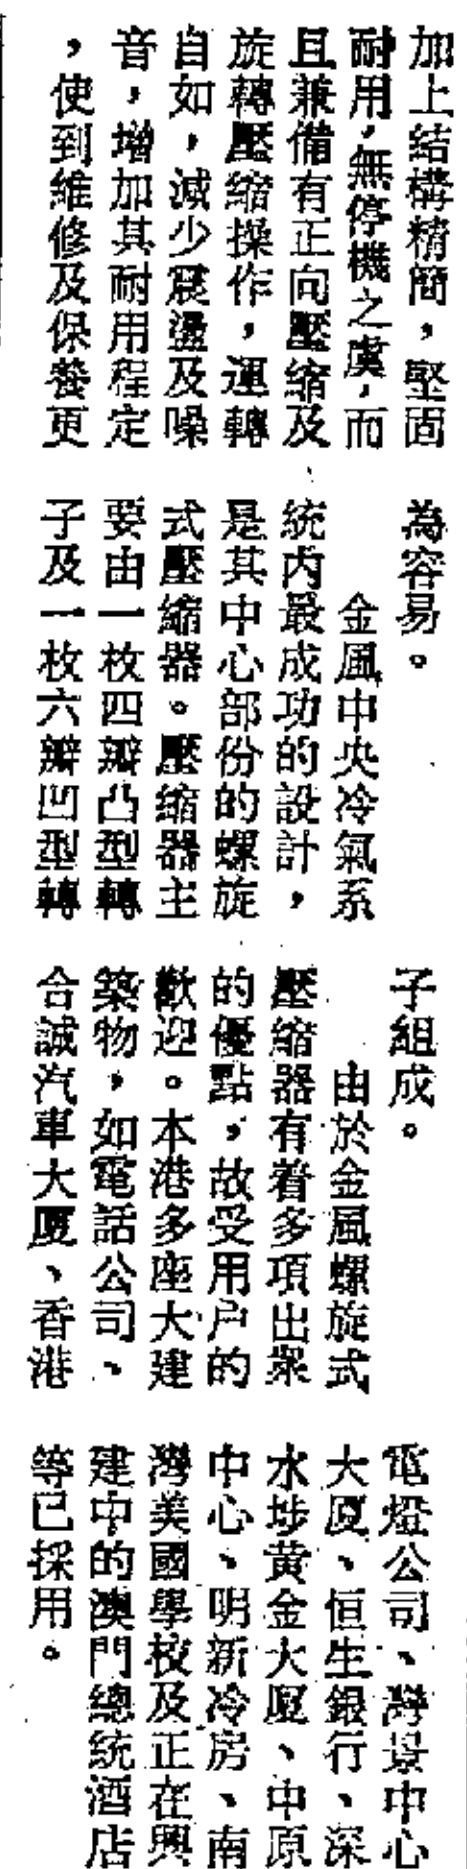 加上結構精簡，堅固
耐用，無停機之虞，而
且兼備有正向壓縮及
旋轉壓縮操作，運轉
自如，減少震盪及噪
音，增加其耐用程定
，使到維修及保養更
為容易。
金風中央冷氣系
統內最成功的設計，
是其中心部份的螺旋
式壓縮器。壓縮器主
要由一枚四瓣凸型轉
子及一枚六瓣凹型轉
子組成。
由於金風螺旋式
壓縮器有着多項出眾
的優點，故受用户的
歡迎。本港多座大建
築物，如電話公司、
合誠汽車大厦、香港
電燈公司、灣景中心
大厦、恒生銀行、深
水埗黃金大厦、中原
中心、明新冷房、南
灣美國學校及正在興
建中的澳門總統酒店
等已採用。